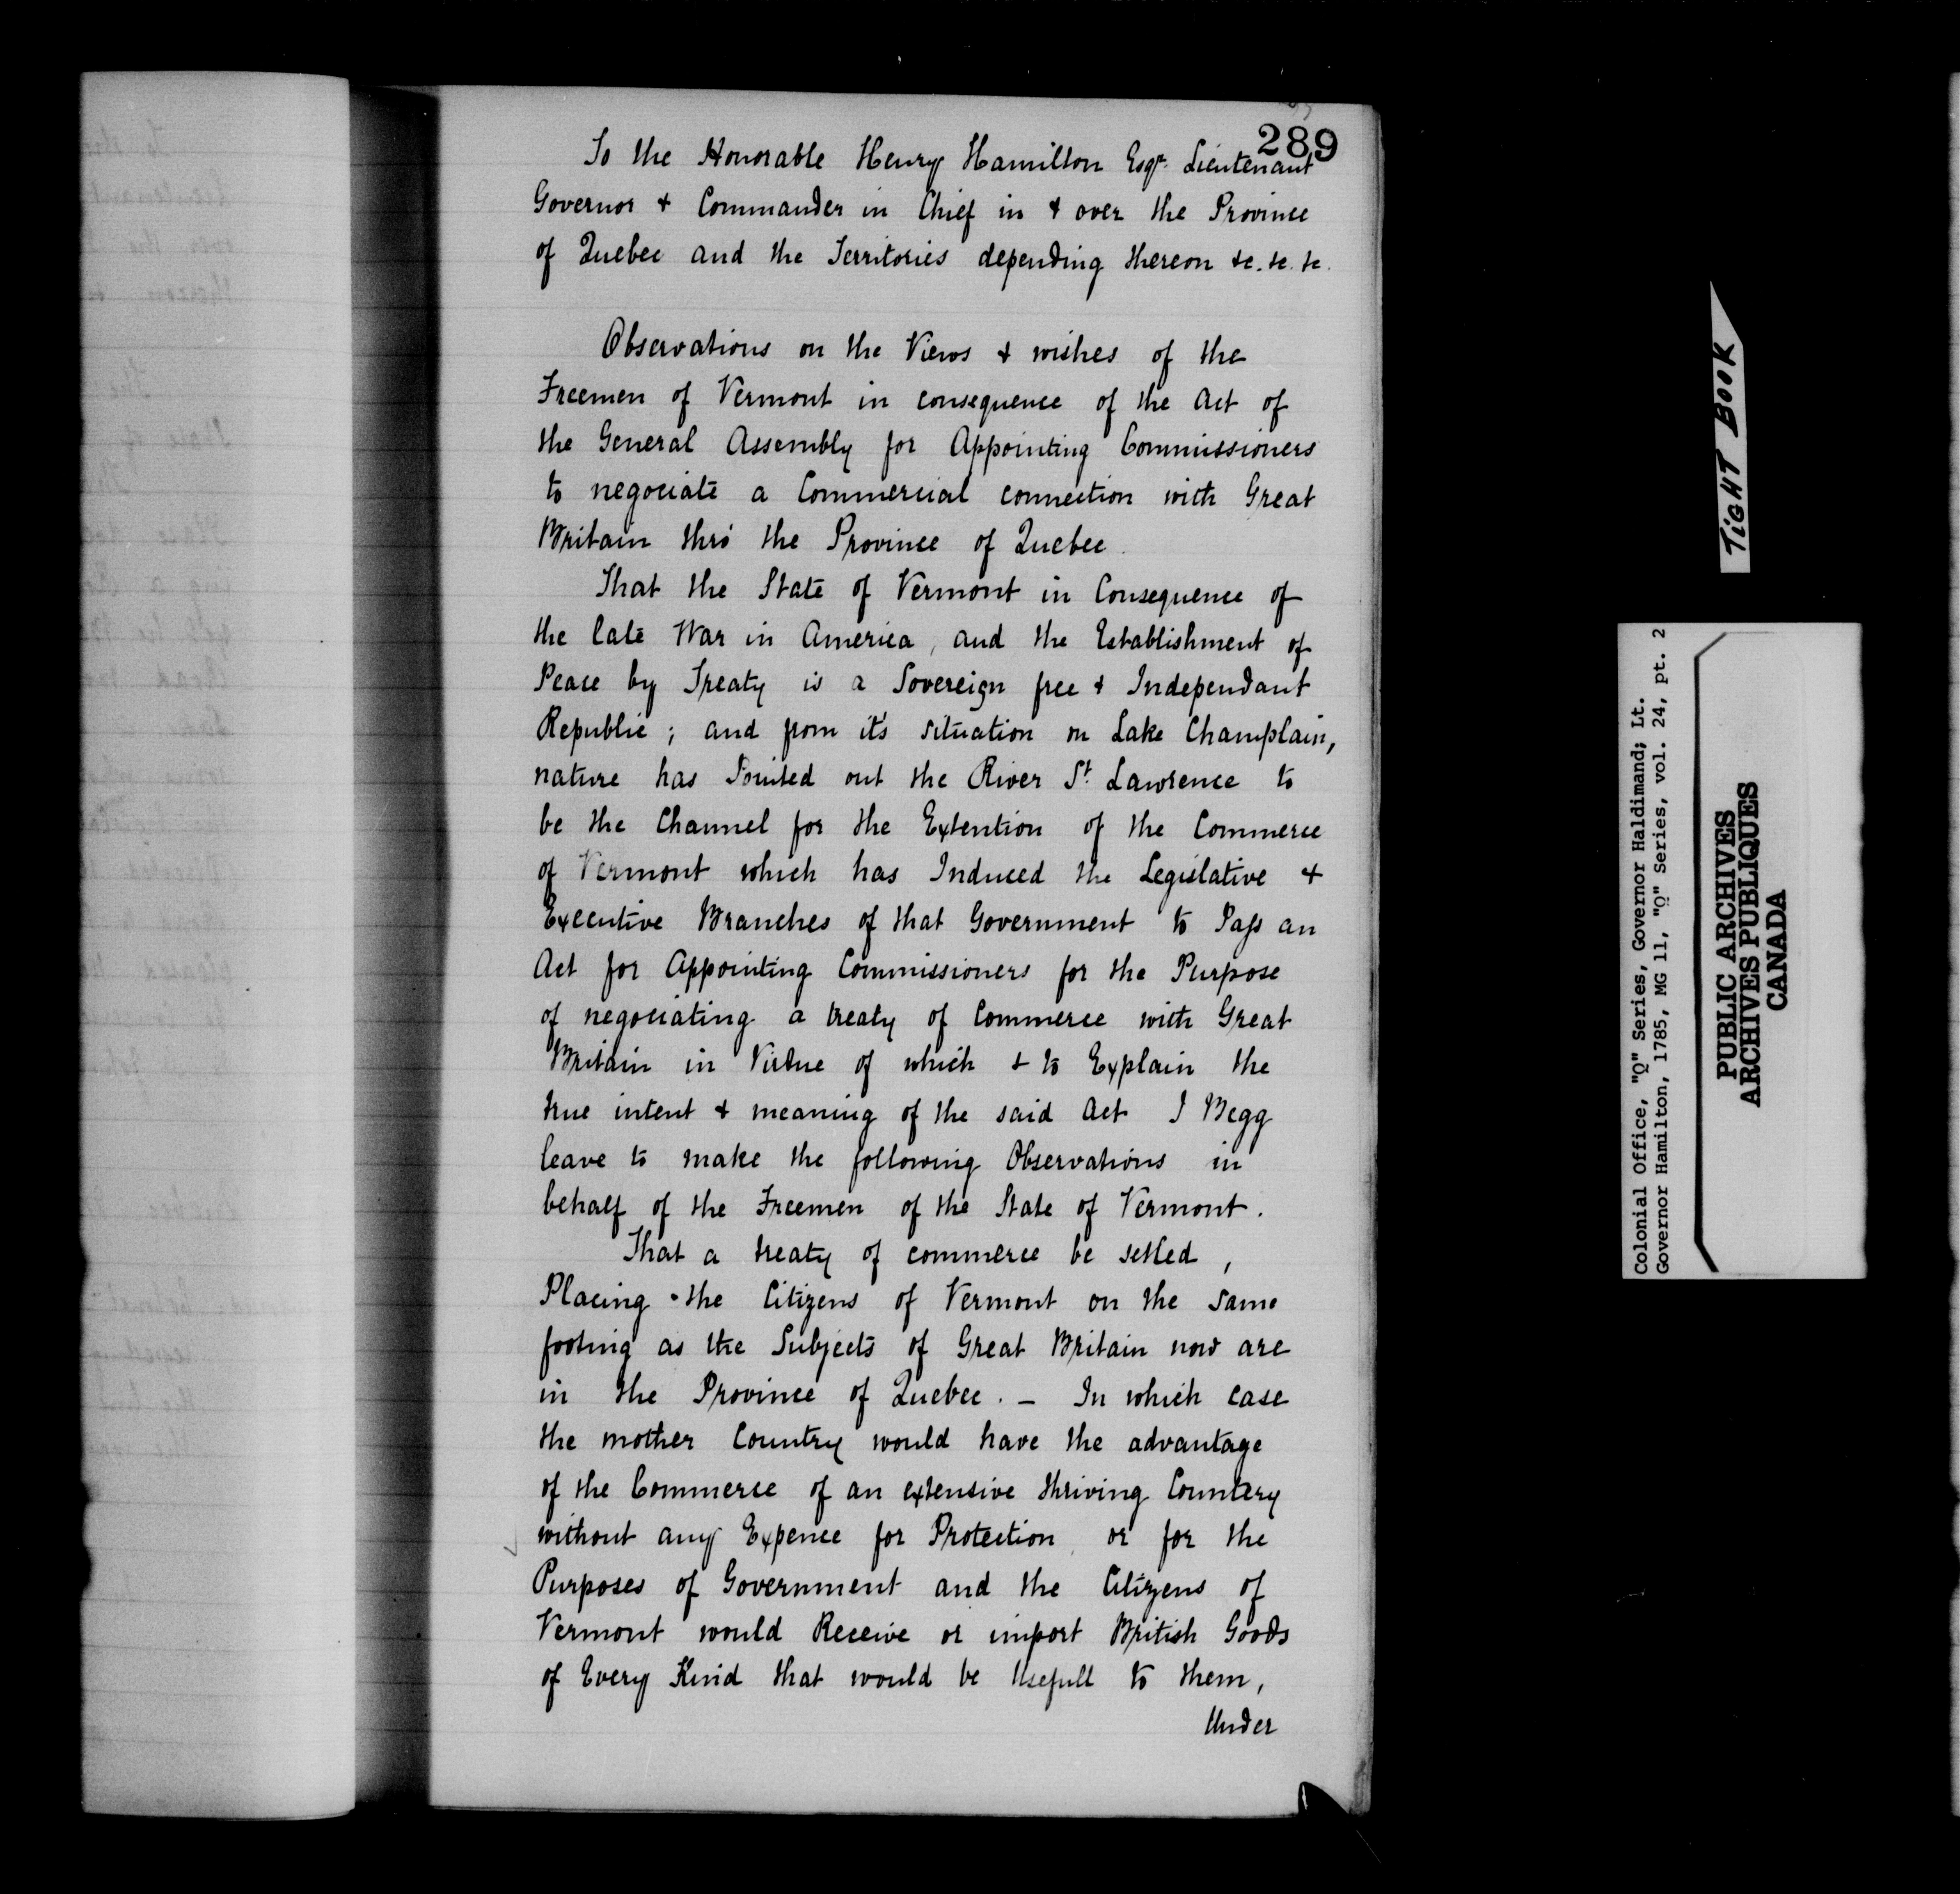 289
To the Honorable Henry Hamilton Esqr. Lieutenant
Governor & Commander in Chief in & over the Province
of Quebec and the Territories depending thereon &c. &c. &c.
Observations on the Views & wishes of the
Freemen of Vermont in consequence of the Act of
the General Assembly for Appointing Commissioners
to negociate a Commercial connection with Great
Britain thro' the Province of Quebec.
That the State of Vermont in Consequence of
the late War in America, and the Establishment of
Peace by Treaty is a Sovereign free & Independant
Republic; and from it's situation on Lake Champlain,
nature has Pointed out the River St. Lawrence to
be the Channel for the Extention of the Commerce
of Vermont which has Induced the Legislative &
Executive Branches of that Government to Pass an
Act for Appointing Commissioners for the Purpose
of negociating a treaty of Commerce with Great
Britain in Virtue of which & to Explain the
true intent & meaning of the said Act I Begg
leave to make the following Observations in
behalf of the Freemen of the State of Vermont.
That a treaty of commerce be setled,
Placing the Citizens of Vermont on the same
footing as the Subjects of Great Britain now are
in the Province of Quebec. – In which case
the mother Country would have the advantage
of the Commerce of an extensive thriving Country
without any Expence for Protection or for the
Purposes of Government and the Citizens of
Vermont would Receive or import British Goods
of Every Kind that would be Usefull to them,
Under
TIGHT BOOK
Colonial Office, "Q" Series, Governor Haldimand; Lt.
Governor Hamilton, 1785, MG 11, "Q" Series, vol. 24, pt. 2
PUBLIC ARCHIVES
ARCHIVES PUBLIQUES
CANADA